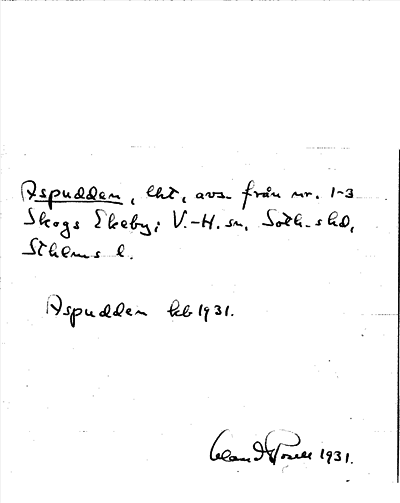 Aspudden, lht, avs. från nr. 1-3
Skogs Ekeby; V.-H. sn, Soth. shd,
Sthlms l.
Aspudden kb 1931.
1931.